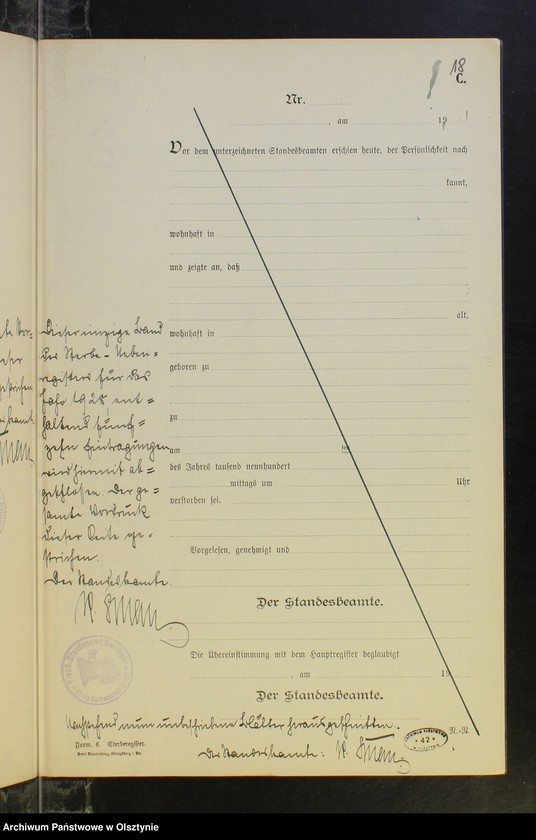 18
C.
Nr.
, am 19
Vor dem unterzeichneten Standesbeamten erschien heute, der Persönlichkeit nach
kannt,
wohnhaft in
und zeigte an, daß
alt,
Dieser einzige Band
wohnhaft in
des Sterbe-Neben-
geboren zu
registers für das
Jahr 1928, ent=
haltend fünf=
zu
zehn Eintragungen
am ten
wird hiermit ab=
des Jahres tausend neunhundert
geschlossen. Der ge=
mittags um Uhr
samte Vordruck
verstorben sei.
dieser Seite ge=
strichen.
Vorgelesen, genehmigt und
Der Standesbeamte.
Der Standesbeamte.
Die Übereinstimmung mit dem Hauptregister beglaubigt
, am 19
Der Standesbeamte.
neun unbeschriebene Blätter herausgeschnitten.
Form. C. Sterberegister.
Der Standesbeamte:
42
Archiwum Państwowe w Olsztynie